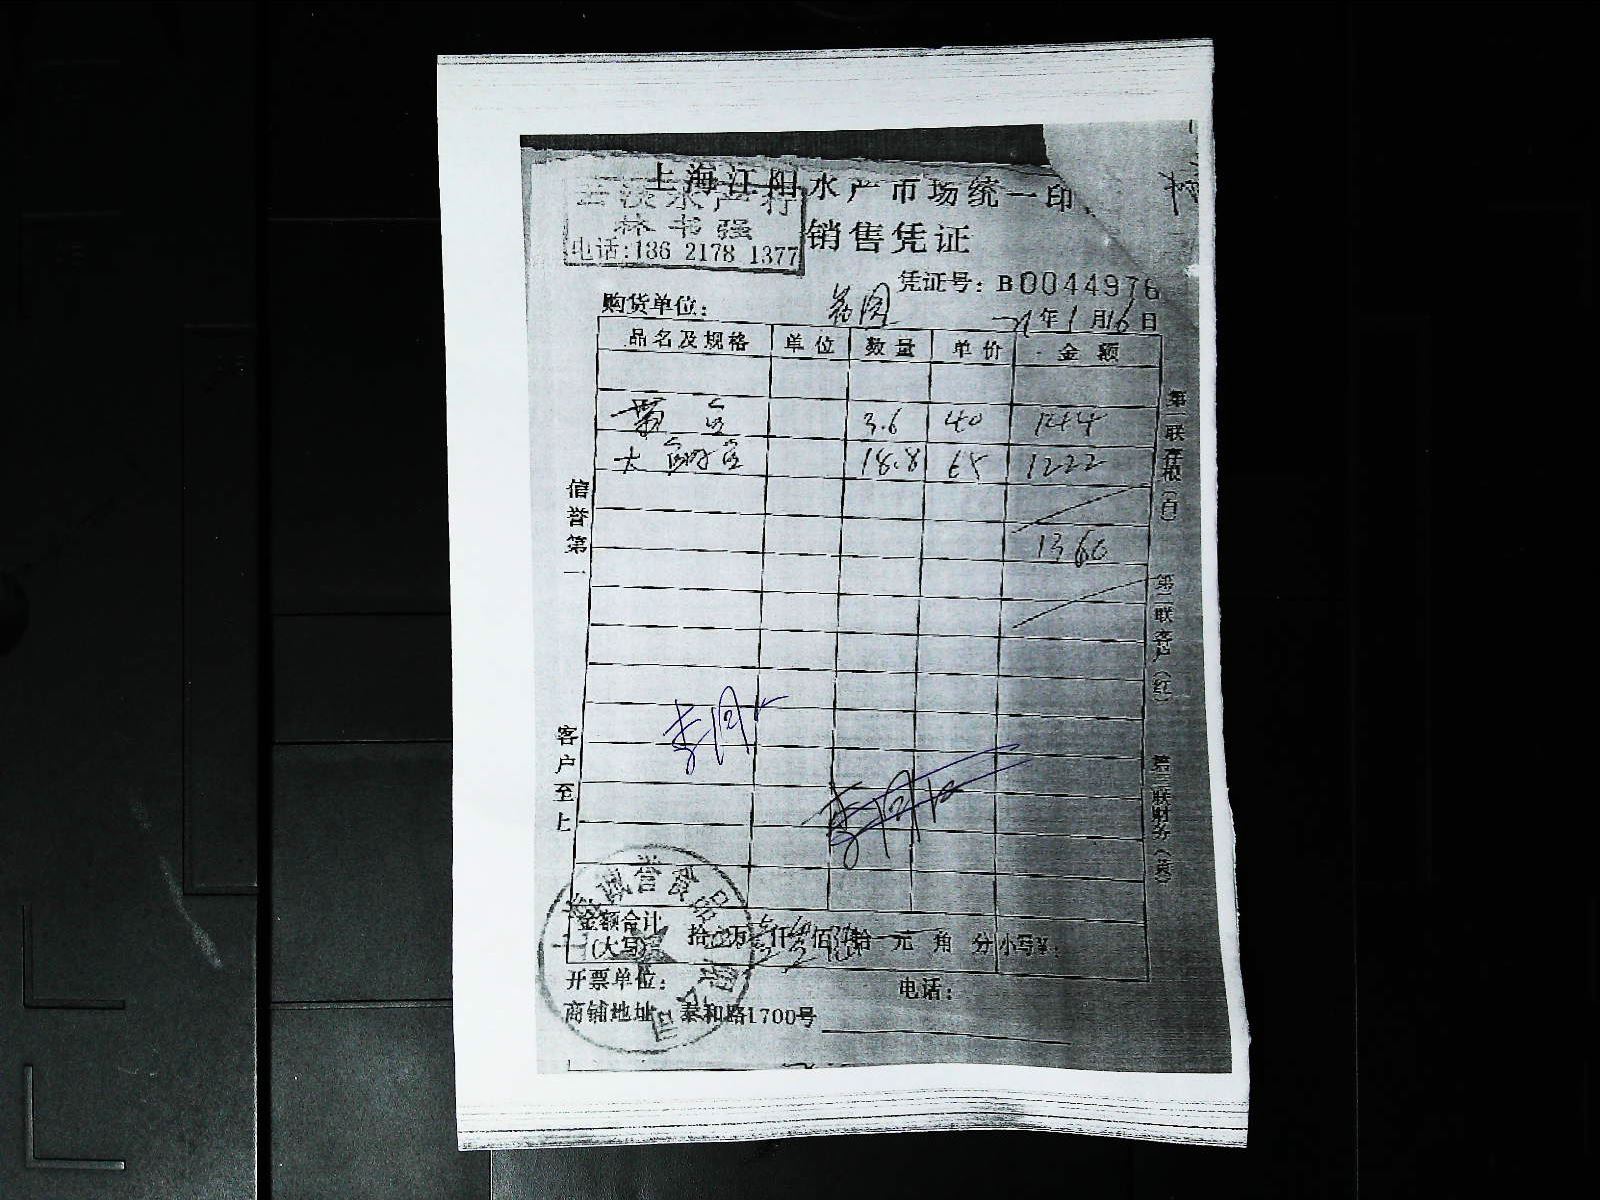 上海江阳水产市场统一印
水产行
林书强
电话:186 2178 1377
销售凭证
凭证号: B0044976
购货单位:
年1月16日
品名及规格 单位 数量 单价 金额
3.6 40 144
大 18.8 65 1222
1366
信誉第一
客户至上
第一联存根(白)
第二联客户(红)
第三联财务(黄)
金额合计
(大写) 拾 万 仟 佰 拾 元 角 分 小写¥:
开票单位: 电话:
商铺地址: 泰和路1700号
誉食品